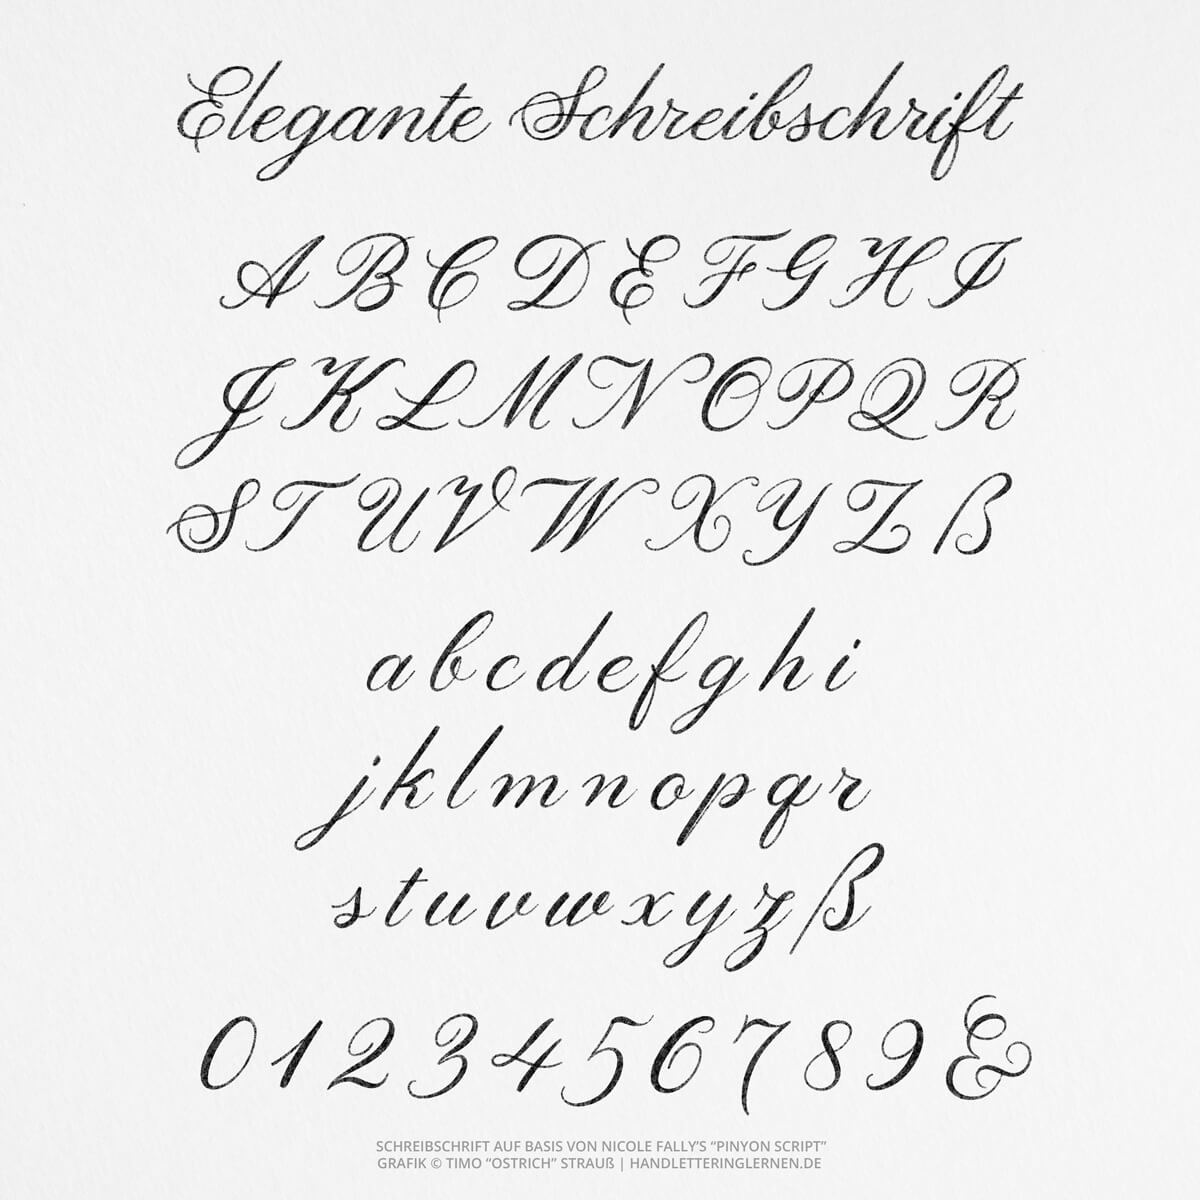 Elegante Schreibschrift
A B C D E F G H I
J K L M N O P Q R
S T U V W X Y Z ẞ
a b c d e f g h i
j k l m n o p q r
s t u v w x y z ß
0 1 2 3 4 5 6 7 8 9 &
SCHREIBSCHRIFT AUF BASIS VON NICOLE FALLY’S “PINYON SCRIPT”
GRAFIK © TIMO “OSTRICH” STRAUß | HANDLETTERINGLERNEN.DE